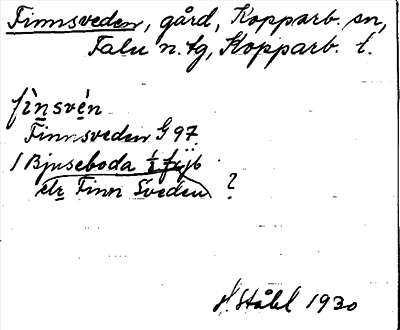 Finnsveden, gård, Kopparb. sn,
Falu n. tg, Kopparb. l.
fìnsvén
Finnsveden G 97
1 Bjuseboda ½
elr Finn Sveden ?
H Ståhl 1930